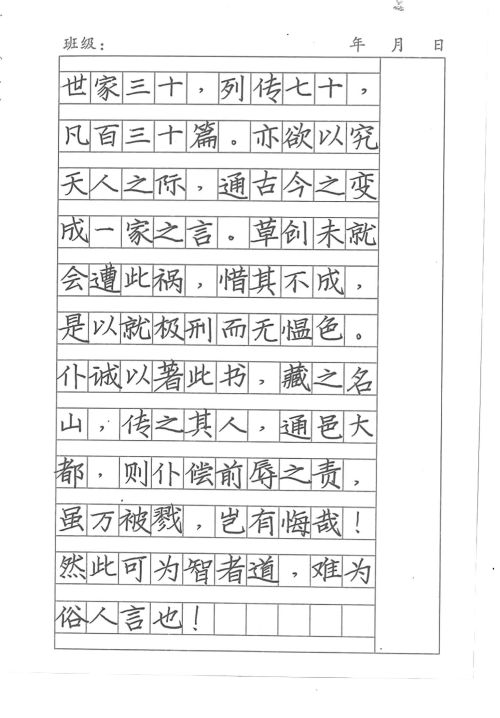 班级： 年 月 日
世家三十，列传七十，
凡百三十篇。亦欲以究
天人之际，通古今之变
成一家之言。草创未就
会遭此祸，惜其不成，
是以就极刑而无愠色。
仆诚以著此书，藏之名
山，传之其人，通邑大
都，则仆偿前辱之责，
虽万被戮，岂有悔哉！
然此可为智者道，难为
俗人言也！